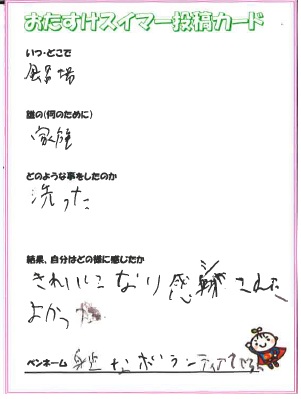 おたすけスイマー投稿カード
いつ・どこで
風呂場
誰の(何のために)
家族
どのような事をしたのか
洗った
結果、自分はどの様に感じたか
きれいになり感謝された
よかった
ペンネーム 身近なボランティアです